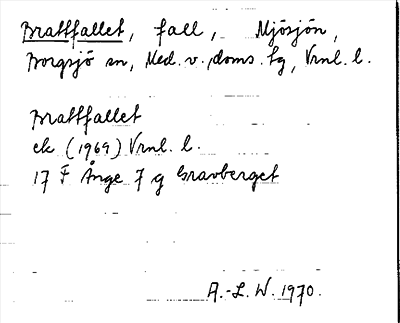 Brattfallet, fall, Mjösjön,
Borgsjö sn, Med. v. doms. tg, Vrnl. l.
Brattfallet
ek (1969) Vrnl. l.
17 F Ånge 7 g Gravberget
A.-L. W. 1970.